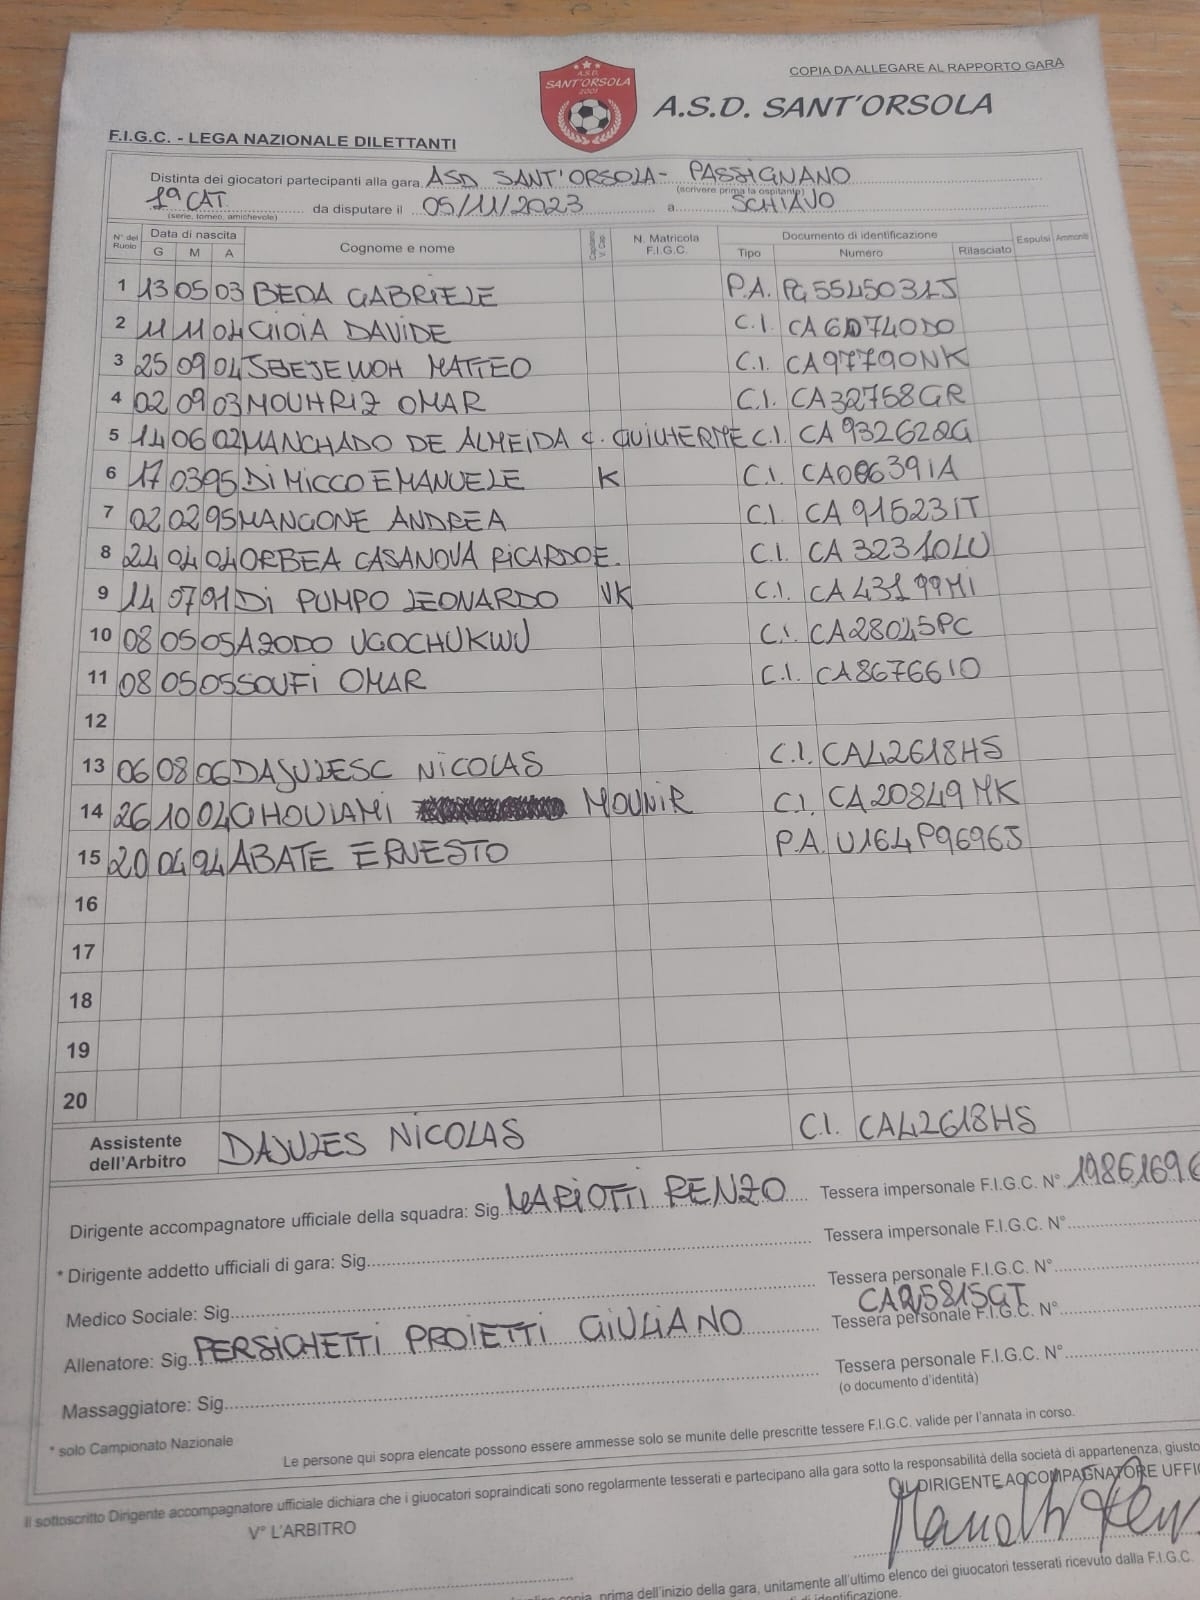 COPIA DA ALLEGARE AL RAPPORTO GARA
A.S.D.
SANT'ORSOLA
2001
A.S.D. SANT'ORSOLA
F.I.G.C. - LEGA NAZIONALE DILETTANTI
Distinta dei giocatori partecipanti alla gara ASD SANT'ORSOLA - PASSIGNANO
(scrivere prima la ospitante)
1ª CAT. da disputare il 05/11/2023 a SCHIAVO
(serie, torneo, amichevole)
N° del Ruolo Data di nascita G M A Cognome e nome Capitano V. Cap. N. Matricola F.I.G.C. Documento di identificazione Tipo Numero Rilasciato Espulsi Ammoniti
1 13 05 03 BEDA GABRIELE P.A. PG5545031J
2 11 11 04 GIOIA DAVIDE C.I. CA60740DO
3 25 09 04 SBEJEWOH MATTEO C.I. CA97790NK
4 02 09 03 MOUHRIZ OMAR C.I. CA32758GR
5 14 06 02 MANCHADO DE ALMEIDA C. GUILHERME C.I. CA93262QG
6 17 03 95 DI MICCO EMANUELE K C.I. CA08639IA
7 02 02 95 MANGONE ANDREA C.I. CA91523IT
8 24 04 04 ORBEA CASANOVA RICARDO E. C.I. CA32310LU
9 14 07 91 DI PUMPO LEONARDO VK C.I. CA43199MI
10 08 05 05 AZODO UGOCHUKWU C.I. CA28045PC
11 08 05 05 SOUFI OMAR C.I. CA86766IO
12
13 06 08 06 DAJULESC NICOLAS C.I. CA42618HS
14 26 10 04 GHOULAMI MOUNIR C.I. CA20849MK
15 20 04 94 ABATE ERNESTO P.A. U164P9696J
16
17
18
19
20
Assistente dell'Arbitro DAJULES NICOLAS C.I. CA42618HS
Dirigente accompagnatore ufficiale della squadra: Sig. MARIOTTI RENZO Tessera impersonale F.I.G.C. N° 1986169
* Dirigente addetto ufficiali di gara: Sig. Tessera impersonale F.I.G.C. N°
Medico Sociale: Sig. Tessera personale F.I.G.C. N°
Allenatore: Sig. PERSICHETTI PROIETTI GIULIANO Tessera personale F.I.G.C. N°
Massaggiatore: Sig. Tessera personale F.I.G.C. N°
(o documento d'identità)
* solo Campionato Nazionale
Le persone qui sopra elencate possono essere ammesse solo se munite delle prescritte tessere F.I.G.C. valide per l'annata in corso.
Il sottoscritto Dirigente accompagnatore ufficiale dichiara che i giuocatori sopraindicati sono regolarmente tesserati e partecipano alla gara sotto la responsabilità della società di appartenenza, giusto
V° L'ARBITRO
IL DIRIGENTE ACCOMPAGNATORE UFFIC
copia, prima dell'inizio della gara, unitamente all'ultimo elenco dei giuocatori tesserati ricevuto dalla F.I.G.C.
di identificazione.